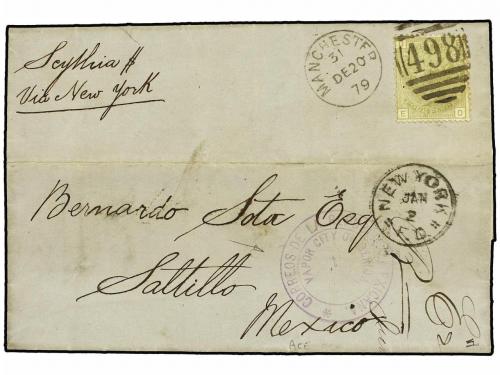 Scythia
Via New York
MANCHESTER
31
DE20
79
498
E D
NEW YORK
JAN
2
F.D.
Bernardo Sota Esq
Saltillo
Mexico
CORREOS DE LA
VAPOR CITY OF
ACE